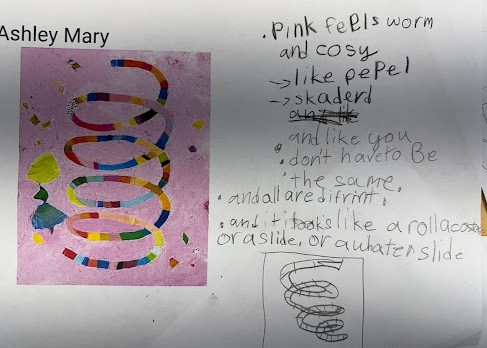 Ashley Mary
. Pink feels worm
and cosy
→ like pepel
→ skaderd
and like you
. don't have to Be
the same.
. and all are difrint.
. and it looks like a rollacoste
or a slide. or a whater slide